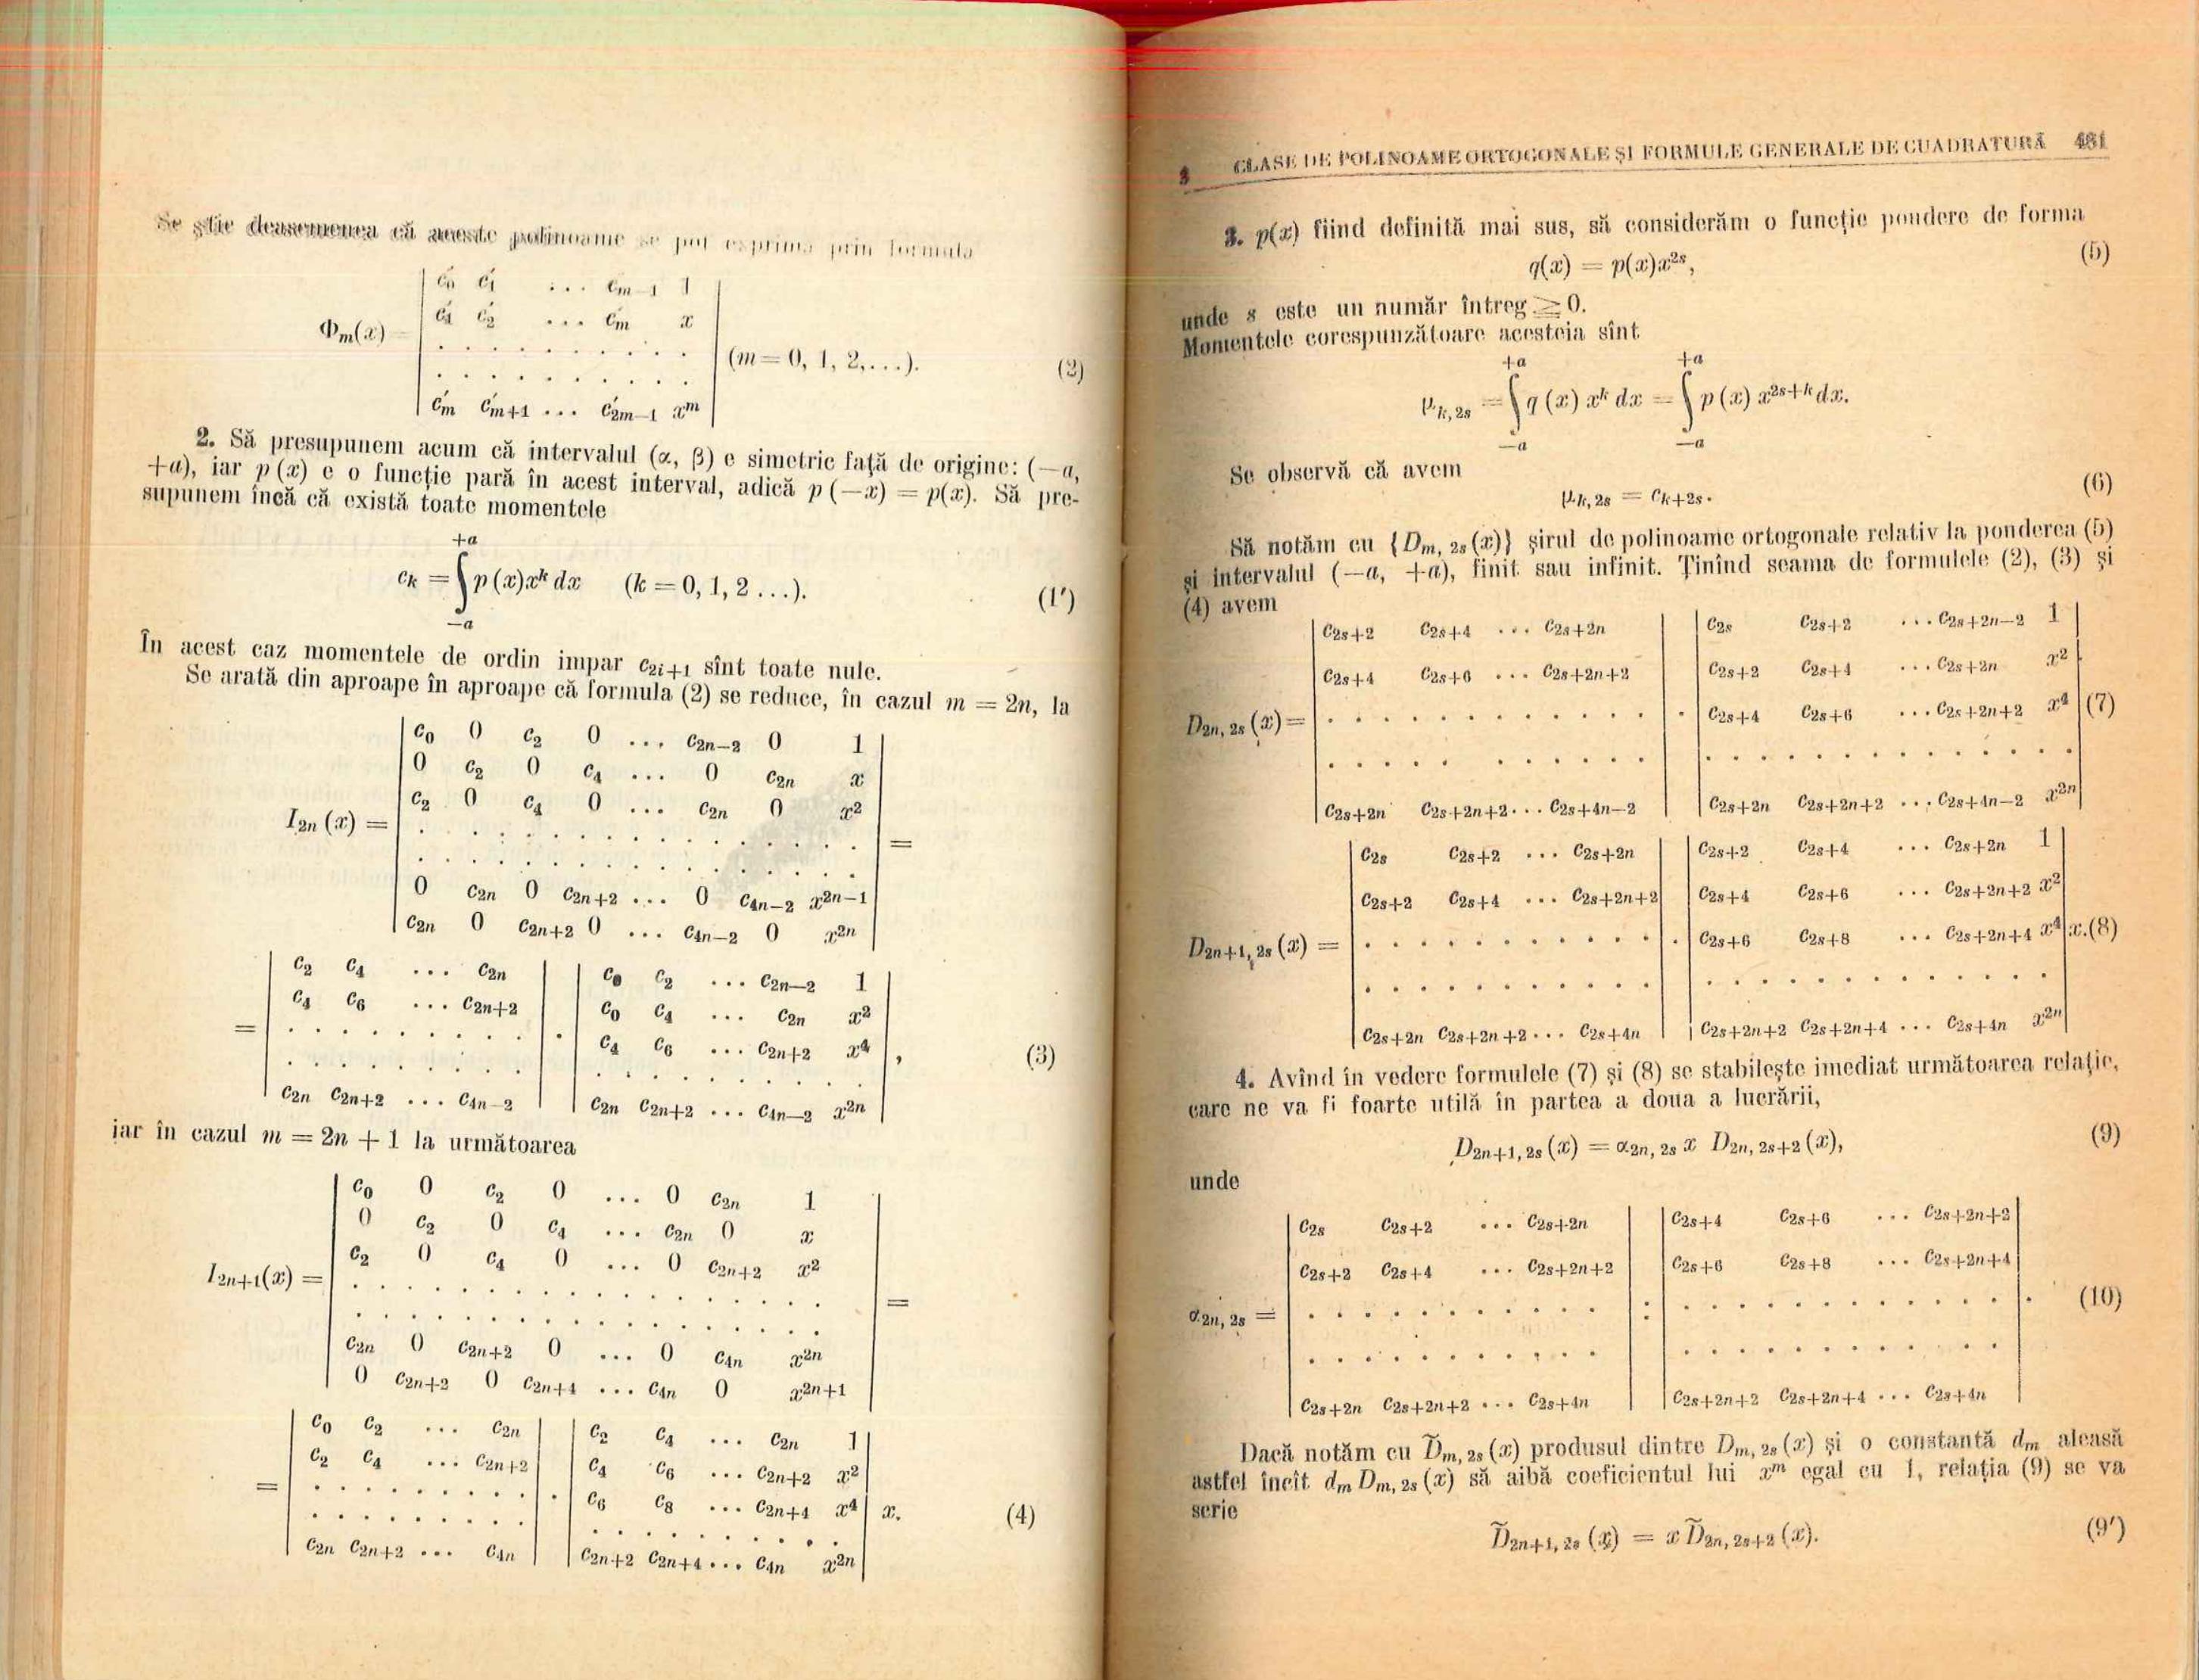 Se știe deasemenea că aceste polinoame se pot exprima prin formula
c′0 c′1 ... c′m−1 1
c′1 c′2 ... c′m x
Φm(x) =
. . . . . . . . . .
(m = 0, 1, 2,...). (2)
. . . . . . . . . .
c′m c′m+1 ... c′2m−1 xᵐ
2. Să presupunem acum că intervalul (α, β) e simetric față de origine: (—a,
+a), iar p (x) e o funcție pară în acest interval, adică p (—x) = p(x). Să pre-
supunem încă că există toate momentele
+a
ck = ∫ p (x)xᵏ dx (k = 0, 1, 2 ...). (1′)
—a
În acest caz momentele de ordin impar c2i+1 sînt toate nule.
Se arată din aproape în aproape că formula (2) se reduce, în cazul m = 2n, la
c0 0 c2 0 ... c2n−2 0 1
0 c2 0 c4 ... 0 c2n x
c2 0 c4 0 ... c2n 0 x²
I2n (x) =
. . . . . . . . . . . . . . . .
=
. . . . . . . . . . . . . . . .
0 c2n 0 c2n+2 ... 0 c4n−2 x²ⁿ⁻¹
c2n 0 c2n+2 0 ... c4n−2 0 x²ⁿ
c2 c4 ... c2n c0 c2 ... c2n−2 1
c4 c6 ... c2n+2 c0 c4 ... c2n x²
= . . . . . . . . . · c4 c6 ... c2n+2 x⁴ , (3)
. . . . . . . . . . . . . . . . . .
c2n c2n+2 ... c4n−2 c2n c2n+2 ... c4n−2 x²ⁿ
iar în cazul m = 2n + 1 la următoarea
c0 0 c2 0 ... 0 c2n 1
0 c2 0 c4 ... c2n 0 x
c2 0 c4 0 ... 0 c2n+2 x²
I2n+1(x) =
. . . . . . . . . . . . . . . . . .
=
. . . . . . . . . . . . . . . . . .
c2n 0 c2n+2 0 ... 0 c4n x²ⁿ
0 c2n+2 0 c2n+4 ... c4n 0 x²ⁿ⁺¹
c0 c2 ... c2n c2 c4 ... c2n 1
c2 c4 ... c2n+2 c4 c6 ... c2n+2 x²
= . . . . . . . . . · c6 c8 ... c2n+4 x⁴ x. (4)
. . . . . . . . . . . . . . . . . .
c2n c2n+2 ... c4n c2n+2 c2n+4 ... c4n x²ⁿ
3 CLASE DE POLINOAME ORTOGONALE ȘI FORMULE GENERALE DE CUADRATURĂ 481
3. p(x) fiind definită mai sus, să considerăm o funcție pondere de forma
q(x) = p(x)x²ˢ, (5)
unde s este un număr întreg ≥ 0.
Momentele corespunzătoare acesteia sînt
+a +a
μk, 2s = ∫ q (x) xᵏ dx = ∫ p (x) x²ˢ⁺ᵏ dx.
—a —a
Se observă că avem
μk, 2s = ck+2s. (6)
Să notăm cu {Dm, 2s (x)} șirul de polinoame ortogonale relativ la ponderea (5)
și intervalul (—a, +a), finit sau infinit. Ținînd seama de formulele (2), (3) și
(4) avem
c2s+2 c2s+4 ... c2s+2n c2s c2s+2 ... c2s+2n−2 1
c2s+4 c2s+6 ... c2s+2n+2 c2s+2 c2s+4 ... c2s+2n x²
D2n, 2s (x) = . . . . . . . . . . . . · c2s+4 c2s+6 ... c2s+2n+2 x⁴ (7)
. . . . . . . . . . . . . . . . . . . . . . .
c2s+2n c2s+2n+2 ... c2s+4n−2 c2s+2n c2s+2n+2 ... c2s+4n−2 x²ⁿ
c2s c2s+2 ... c2s+2n c2s+2 c2s+4 ... c2s+2n 1
c2s+2 c2s+4 ... c2s+2n+2 c2s+4 c2s+6 ... c2s+2n+2 x²
D2n+1, 2s (x) = . . . . . . . . . . . . · c2s+6 c2s+8 ... c2s+2n+4 x⁴ x. (8)
. . . . . . . . . . . . . . . . . . . . . . .
c2s+2n c2s+2n+2 ... c2s+4n c2s+2n+2 c2s+2n+4 ... c2s+4n x²ⁿ
4. Avînd în vedere formulele (7) și (8) se stabilește imediat următoarea relație,
care ne va fi foarte utilă în partea a doua a lucrării,
D2n+1, 2s (x) = α2n, 2s x D2n, 2s+2 (x), (9)
unde
c2s c2s+2 ... c2s+2n c2s+4 c2s+6 ... c2s+2n+2
c2s+2 c2s+4 ... c2s+2n+2 c2s+6 c2s+8 ... c2s+2n+4
α2n, 2s = . . . . . . . . . . . : . . . . . . . . . . . . . (10)
. . . . . . . . . . . . . . . . . . . . . .
c2s+2n c2s+2n+2 ... c2s+4n c2s+2n+2 c2s+2n+4 ... c2s+4n
Dacă notăm cu D̃m, 2s (x) produsul dintre Dm, 2s (x) și o constantă dm aleasă
astfel încît dm Dm, 2s (x) să aibă coeficientul lui xᵐ egal cu 1, relația (9) se va
scrie
D̃2n+1, 2s (x) = x D̃2n, 2s+2 (x). (9′)